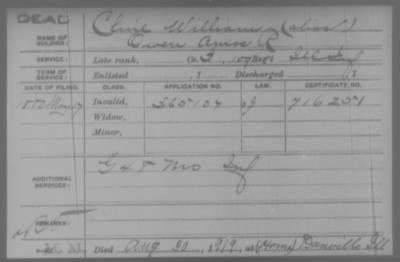 DEAD
NAME OF SOLDIER: Cline William (alias)
Owen Amos R
SERVICE: Late rank, Co. I, 109 Reg't Ill Inf
TERM OF SERVICE: Enlisted , 1 Discharged , 1
DATE OF FILING. CLASS. APPLICATION NO. LAW. CERTIFICATE NO.
Invalid, 365107 716251
Widow,
Minor,
ADDITIONAL SERVICES: G 48 Mo Inf
REMARKS:
Died Aug 30, 1919, at (Home) Danville Ill